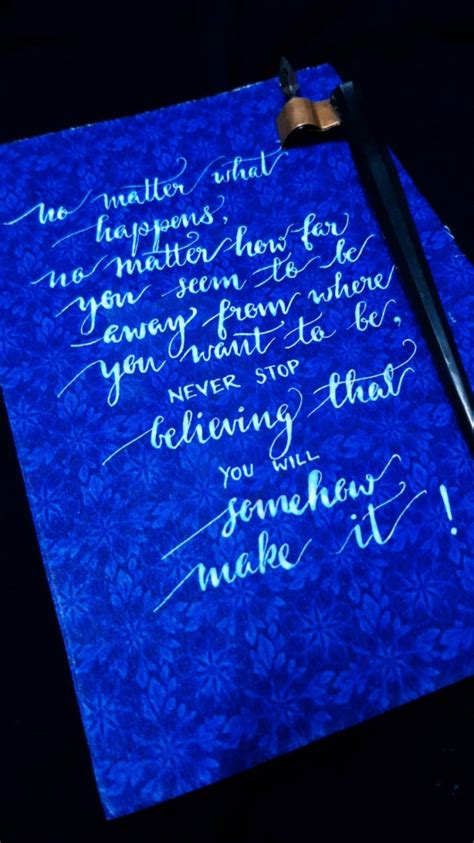 no matter what
happens,
no matter how far
you seem to be
away from where
you want to be,
NEVER STOP
believing that
YOU WILL
somehow
make it!